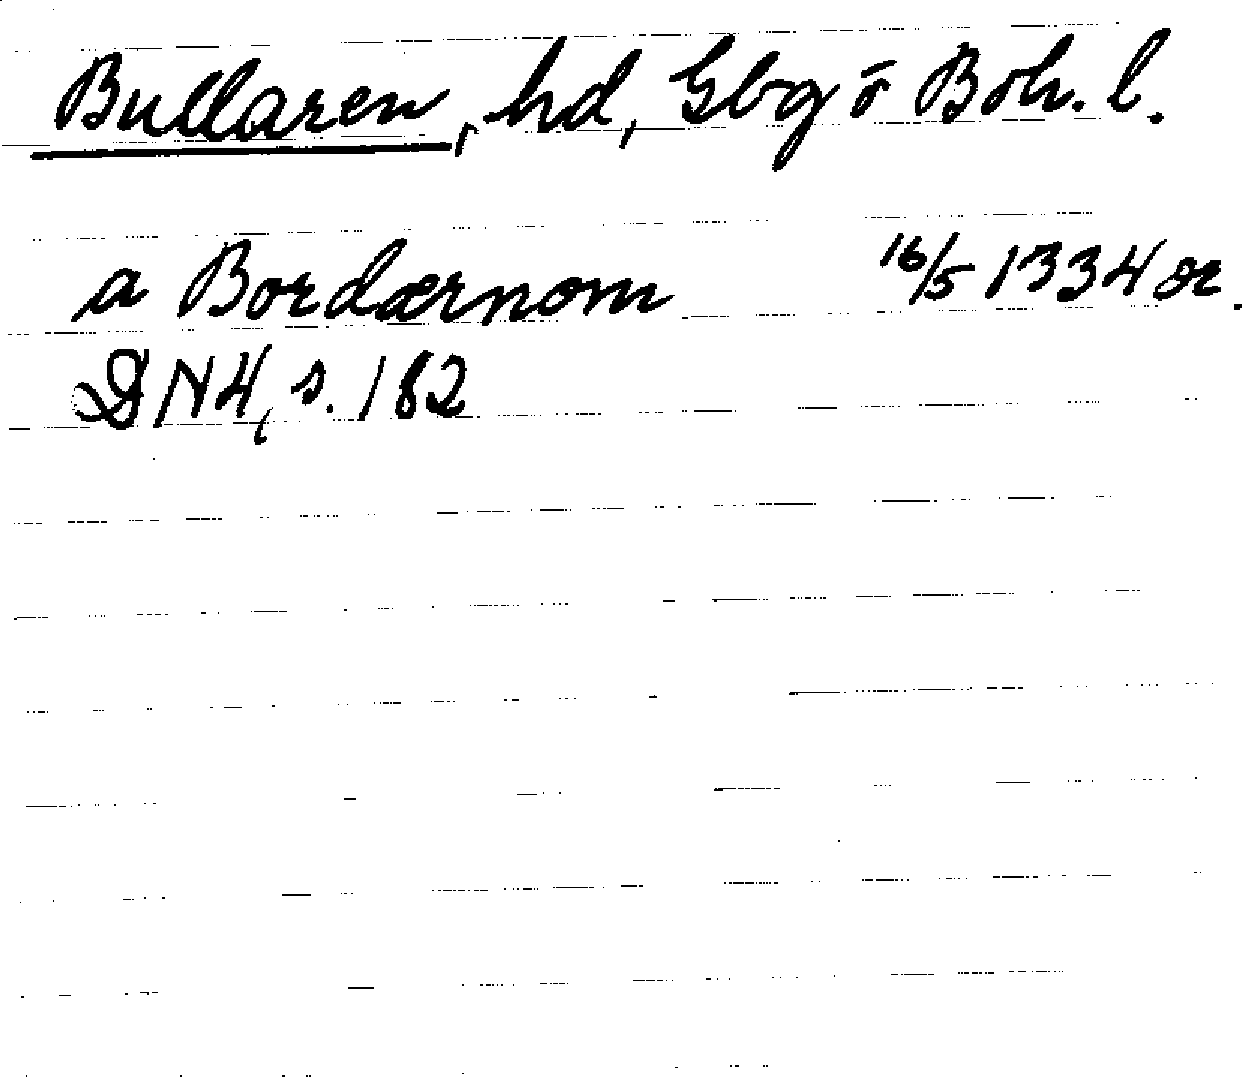 Bullaren, hd, Gbg o Boh. l.
a Bordærnom 16/5 1334 or.
DN 4, s. 182